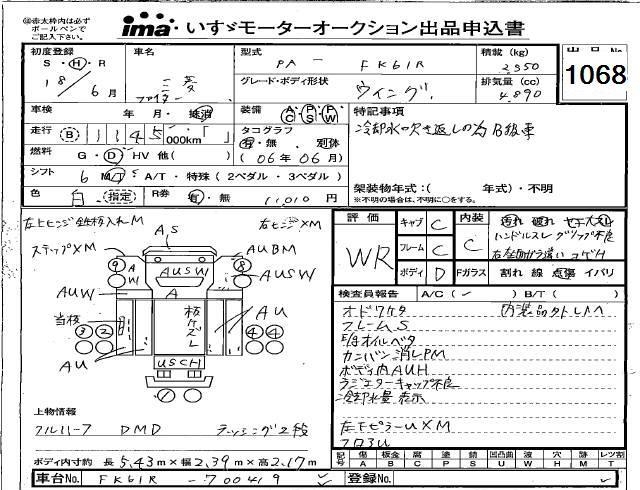 ◎赤太枠内は必ず
ボールペンで
ご記入下さい。
ima いすゞモーターオークション出品申込書
初度登録 車名 型式 PA - FK61R 積載 (kg) 2,350 出口 No. 1068
S・H・R 18 / 6月 三菱 ファイター グレード・ボディ形状 ウイング 排気量 (cc) 4,890
車検 年 月・抹消 装備 AC PS PW 特記事項
走行 B 1145 000km「 」 タコグラフ 有・無 別体 冷却水吹き返しの為B級車
燃料 G・D HV 他( ) (06年06月)
シフト 6 MT A/T・特殊 (2ペダル・3ペダル) 架装物年式:( 年式)・不明
色 白 指定 R券 有・無 11,010円 ※不明の場合は、不明に○をする。
左上ヒンジ鉄板入れM AS 右ヒンジXM
ステップXM AUBM
AUSW AUSW
AUW A AU
当板 板ケズレ
AU USCH
評価 WR キャブ C 内装 C 汚れ 破れ
フレーム C ハンドルスレ グリップ不良
ボディ D Fガラス 割れ 線 点傷 イバリ
検査員報告 A/C( ✓ ) B/T( )
オドワケタ 内装品外レ
フレームS
E/gオイルベタ
カンバン消しPM
ボディ内AUH
ラジエターキャップ不良
冷却水量表示
左下ピラーUXM
フロアU
上物情報
フルハーフ DMD ラッシング2段
ボディ内寸約 長5.43m×幅2.39m×高2.17m
記号 傷A 板金B 腐C 塗P 錆S 凹凸曲U 波W 穴H 跡M レンズ割T
車台No. FK61R -700419 登録No.